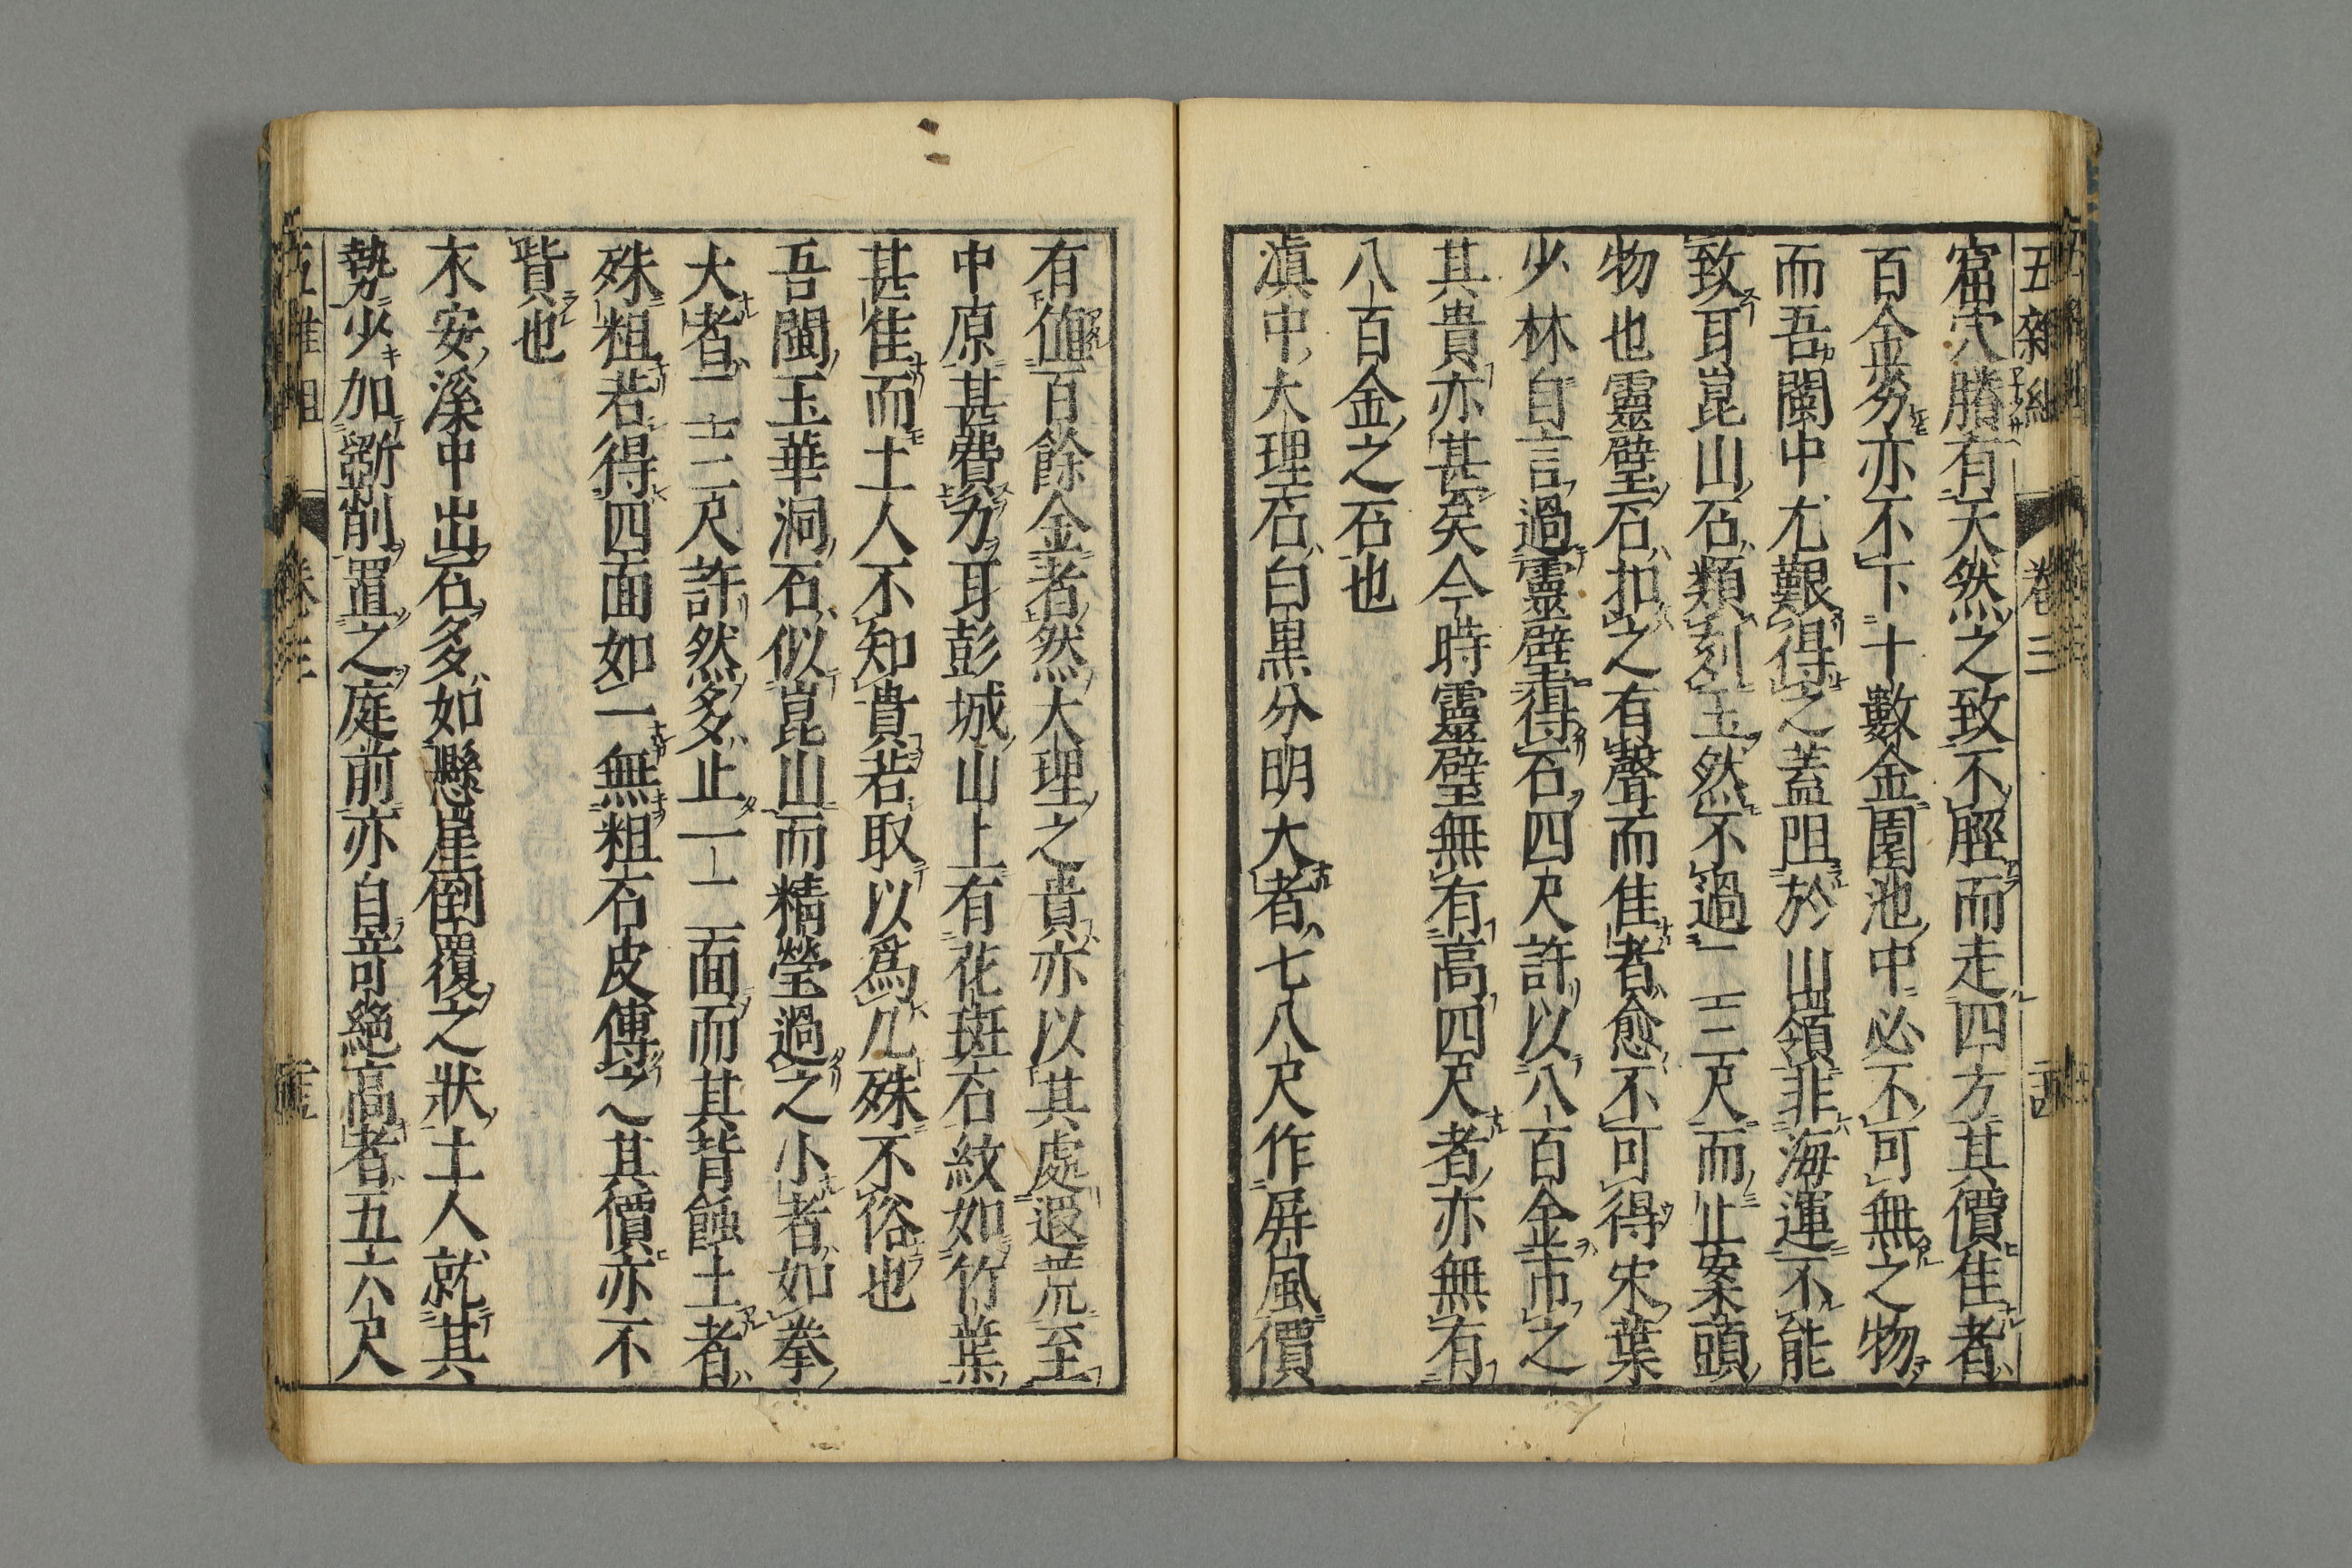 五雜組 卷三
窟穴賸有天然之致不脛而走四方其價佳者
百金劣亦不下十數金園池中必不可無之物
而吾閩中尤艱得之蓋阻於山嶺非海運不能
致耳崑山石類刻玉然不過一二三尺而止案頭
物也靈璧石扣之有聲而佳者愈不可得宋葉
少林自言過靈璧得石四尺許以八百金市之
其貴亦甚矣今時靈璧無有高四尺者亦無有
八百金之石也
滇中大理石白黒分明大者七八尺作屏風價
有値百餘金者然大理之貴亦以其處遐荒至
中原甚費力耳彭城山上有花斑石紋如竹葉
甚佳而土人不知貴若取以爲几殊不俗也
吾閩玉華洞石似崑山而精瑩過之小者如拳
大者二三尺許然多止一二面而其背蝕土者
殊粗若得四面如一無粗石皮傅之其價亦不
貲也
永安溪中出石多如懸崖倒覆之狀土人就其
勢少加斲削置之庭前亦自奇絶高者五六尺
五雜組 卷三